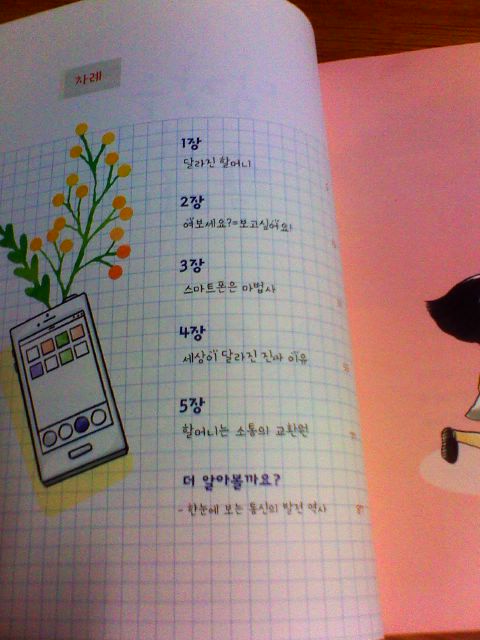 차례
1장
달라진 할머니
2장
여보세요?=보고싶어요!
3장
스마트폰은 마법사
4장
세상이 달라진 진짜 이유
5장
할머니는 소통의 교환원
더 알아볼까요?
- 한눈에 보는 통신의 발전 역사